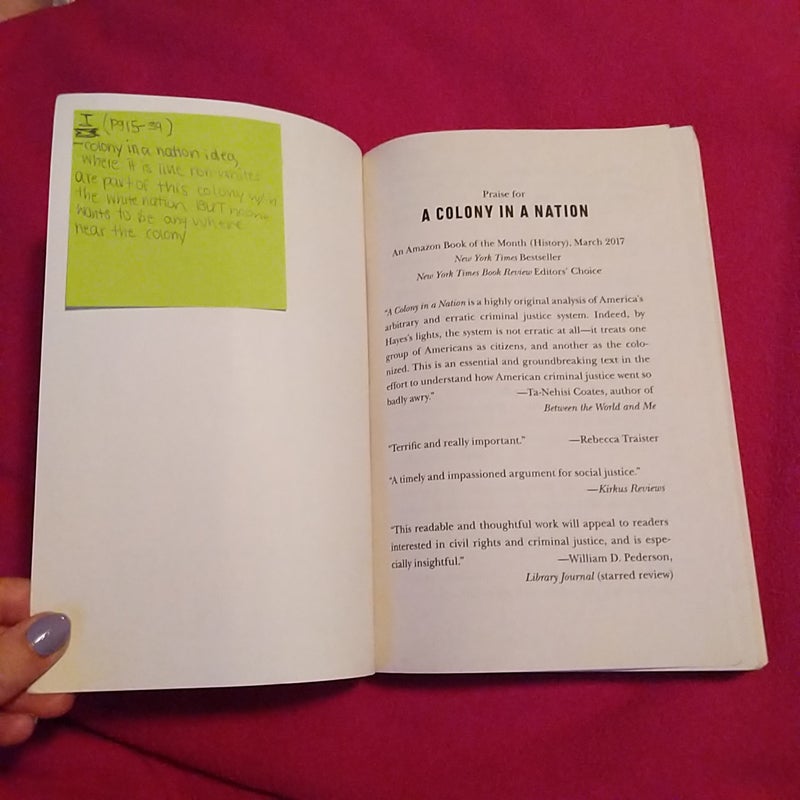 I (pg 15-39)
-colony in a nation idea,
where it is like non-whites
are part of this colony w/in
the white nation BUT noone
wants to be any where
near the colony
Praise for
A COLONY IN A NATION
An Amazon Book of the Month (History), March 2017
New York Times Bestseller
New York Times Book Review Editors' Choice
"A Colony in a Nation is a highly original analysis of America's
arbitrary and erratic criminal justice system. Indeed, by
Hayes's lights, the system is not erratic at all—it treats one
group of Americans as citizens, and another as the colo-
nized. This is an essential and groundbreaking text in the
effort to understand how American criminal justice went so
badly awry." —Ta-Nehisi Coates, author of
Between the World and Me
"Terrific and really important." —Rebecca Traister
"A timely and impassioned argument for social justice."
—Kirkus Reviews
"This readable and thoughtful work will appeal to readers
interested in civil rights and criminal justice, and is espe-
cially insightful." —William D. Pederson,
Library Journal (starred review)